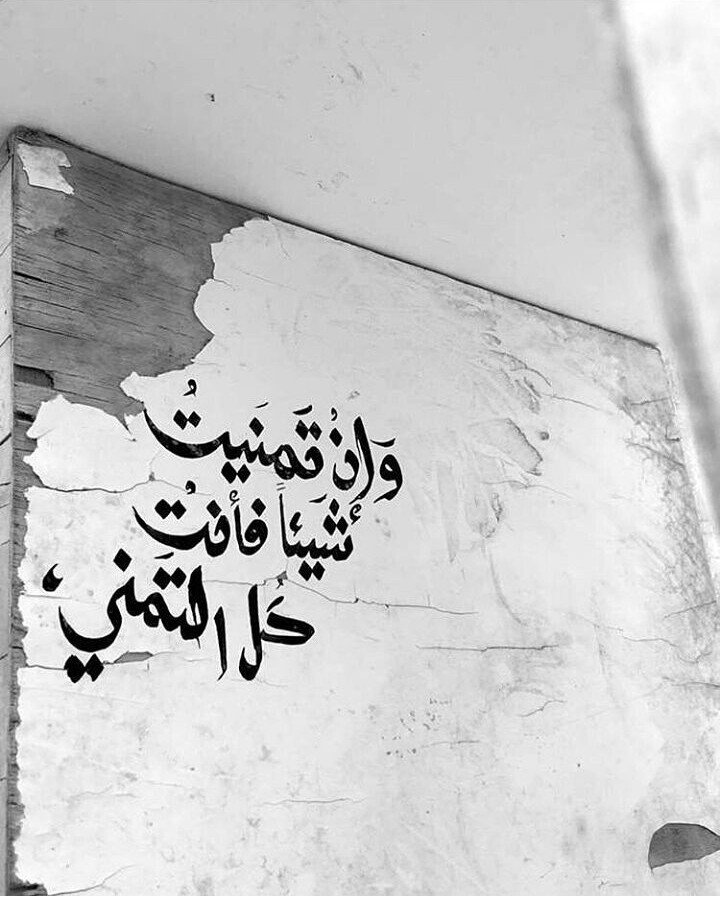 وَإنْ تَمَنَيتُ
شَيئاً فأنتَ
كُل التَمَني،